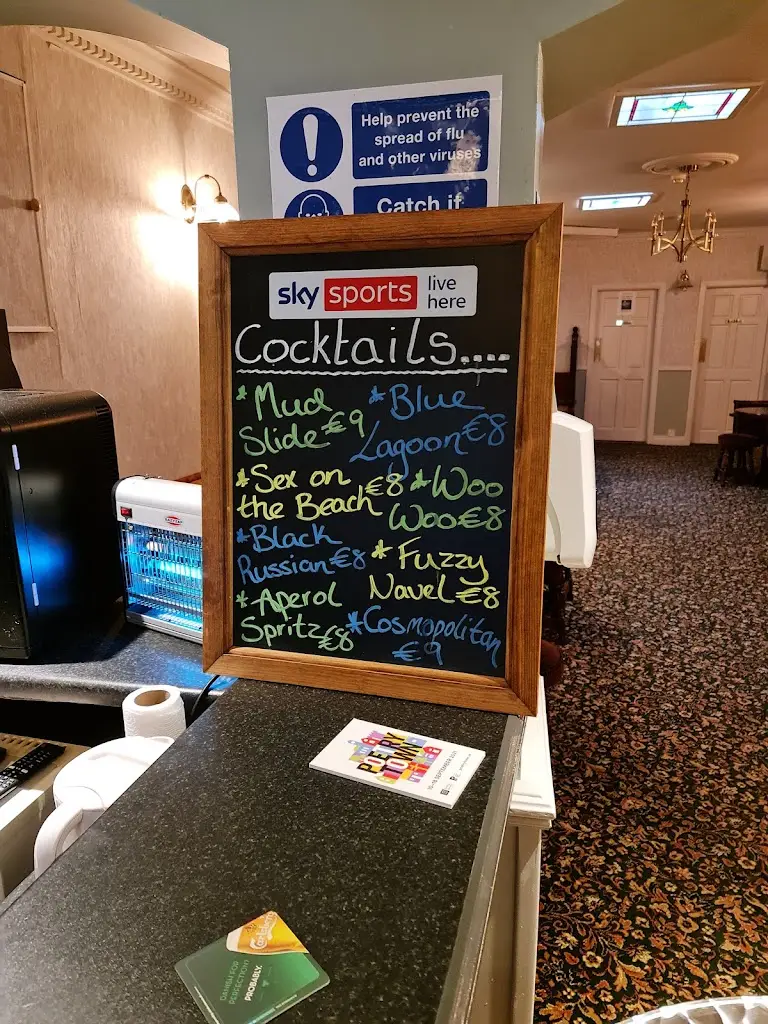 Help prevent the
spread of flu
and other viruses
Catch if
sky sports live
here
Cocktails....
*Mud
Slide €9
*Blue
Lagoon €8
*Sex on
the Beach €8
*Woo
Woo €8
*Black
Russian €8
*Fuzzy
Navel €8
*Aperol
Spritz €8
*Cosmopolitan
€9
POETRY
TOWN
Carlsberg
DANISH FOR
PERFECTION?
PROBABLY.